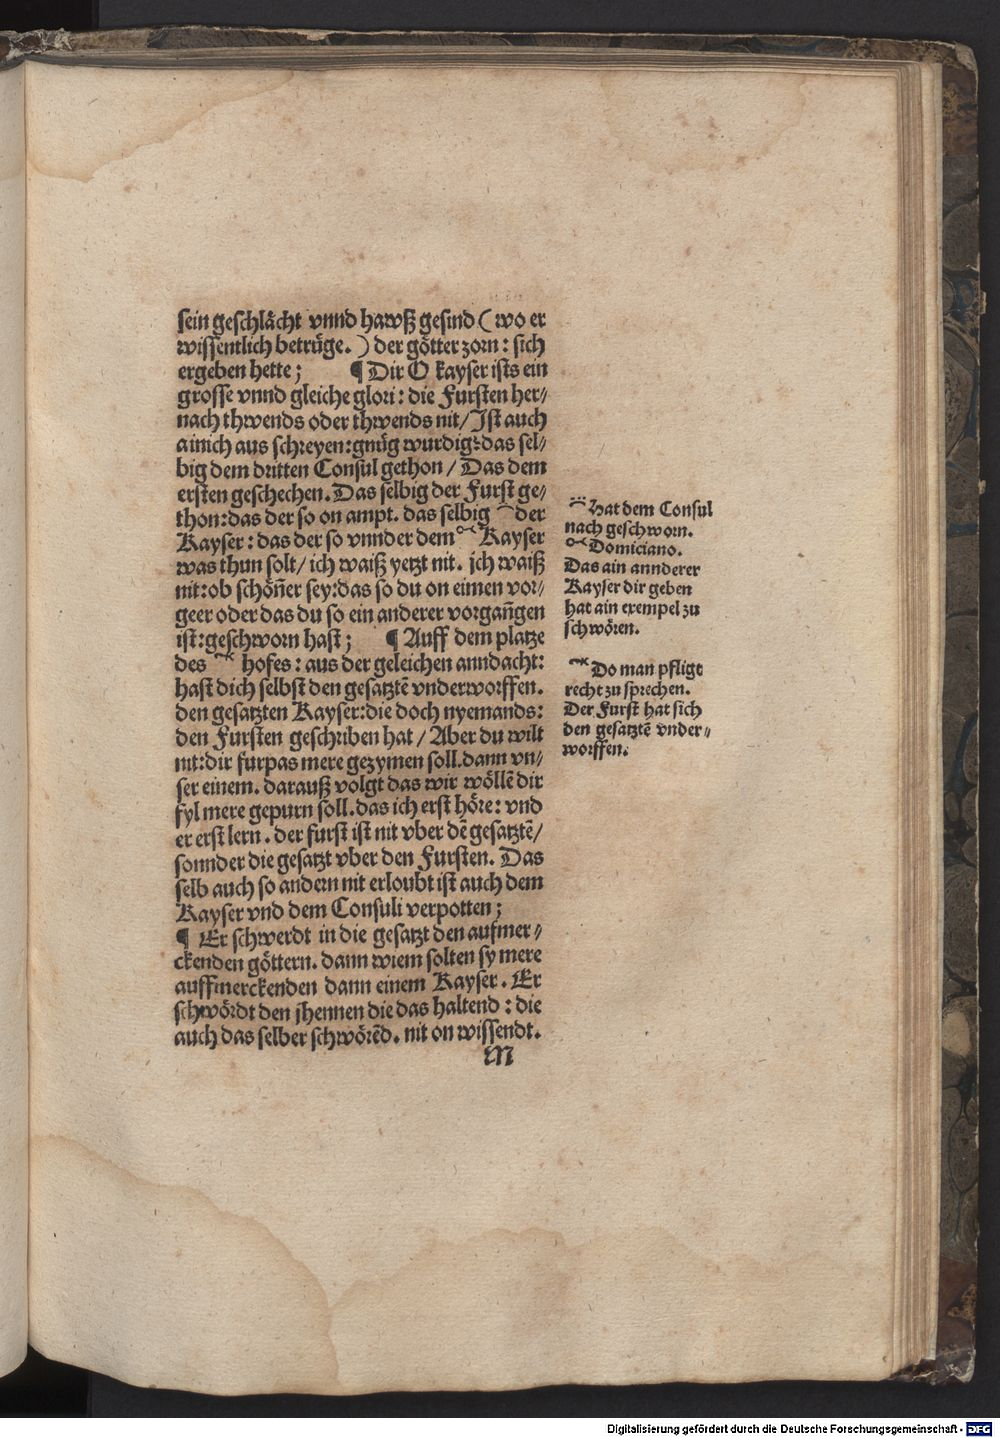 sein geschlächt vnnd hawß gesind ( wo er
wissentlich betrüge. ) der götter zorn : sich
ergeben hette ; ¶ Dir O kayser ists ein
grosse vnnd gleiche glori : die Fursten her/
nach thwends oder thwends nit/ Ist auch
ainich aus schreyen:gnüg wurdig:das sel/
big dem dritten Consul gethon / Das dem
ersten geschechen. Das selbig der Furst ge/
thon:das der so on ampt. das selbig der
Kayser : das der so vnnder dem Kayser
was thun solt/ ich waiß yetzt nit. ich waiß
nit:ob schöñer sey:das so du on einen vor/
geer oder das du so ein anderer vorgañgen
ist:geschworn hast ; ¶ Auff dem platze
des hofes : aus der geleichen anndacht:
hast dich selbst den gesatztē vnderworffen.
den gesatzten Kayser:die doch nyemands:
den Fursten geschriben hat / Aber du wilt
nit:dir furpas mere gezymen soll.dann vn/
ser einem. darauß volgt das wir wöllē dir
fyl mere gepurn soll.das ich erst höre: vnd
er erst lern. der furst ist nit vber dē gesatztē/
sonnder die gesatzt vber den Fursten. Das
selb auch so andern nit erloubt ist auch dem
Kayser vnd dem Consuli verpotten ;
¶ Er schwerdt in die gesatzt den aufmer/
ckenden göttern. dann wiem solten sy mere
auffmerckenden dann einem Kayser. Er
schwördt den jhennen die das haltend : die
auch das selber schwörēd. nit on wissendt.
M
Hat dem Consul
nach geschworn.
Domiciano.
Das ain annderer
Kayser dir geben
hat ain exempel zu
schwören.
Do man pfligt
recht zu sprechen.
Der Furst hat sich
den gesatztē vnder/
worffen.
Digitalisierung gefördert durch die Deutsche Forschungsgemeinschaft - DFG